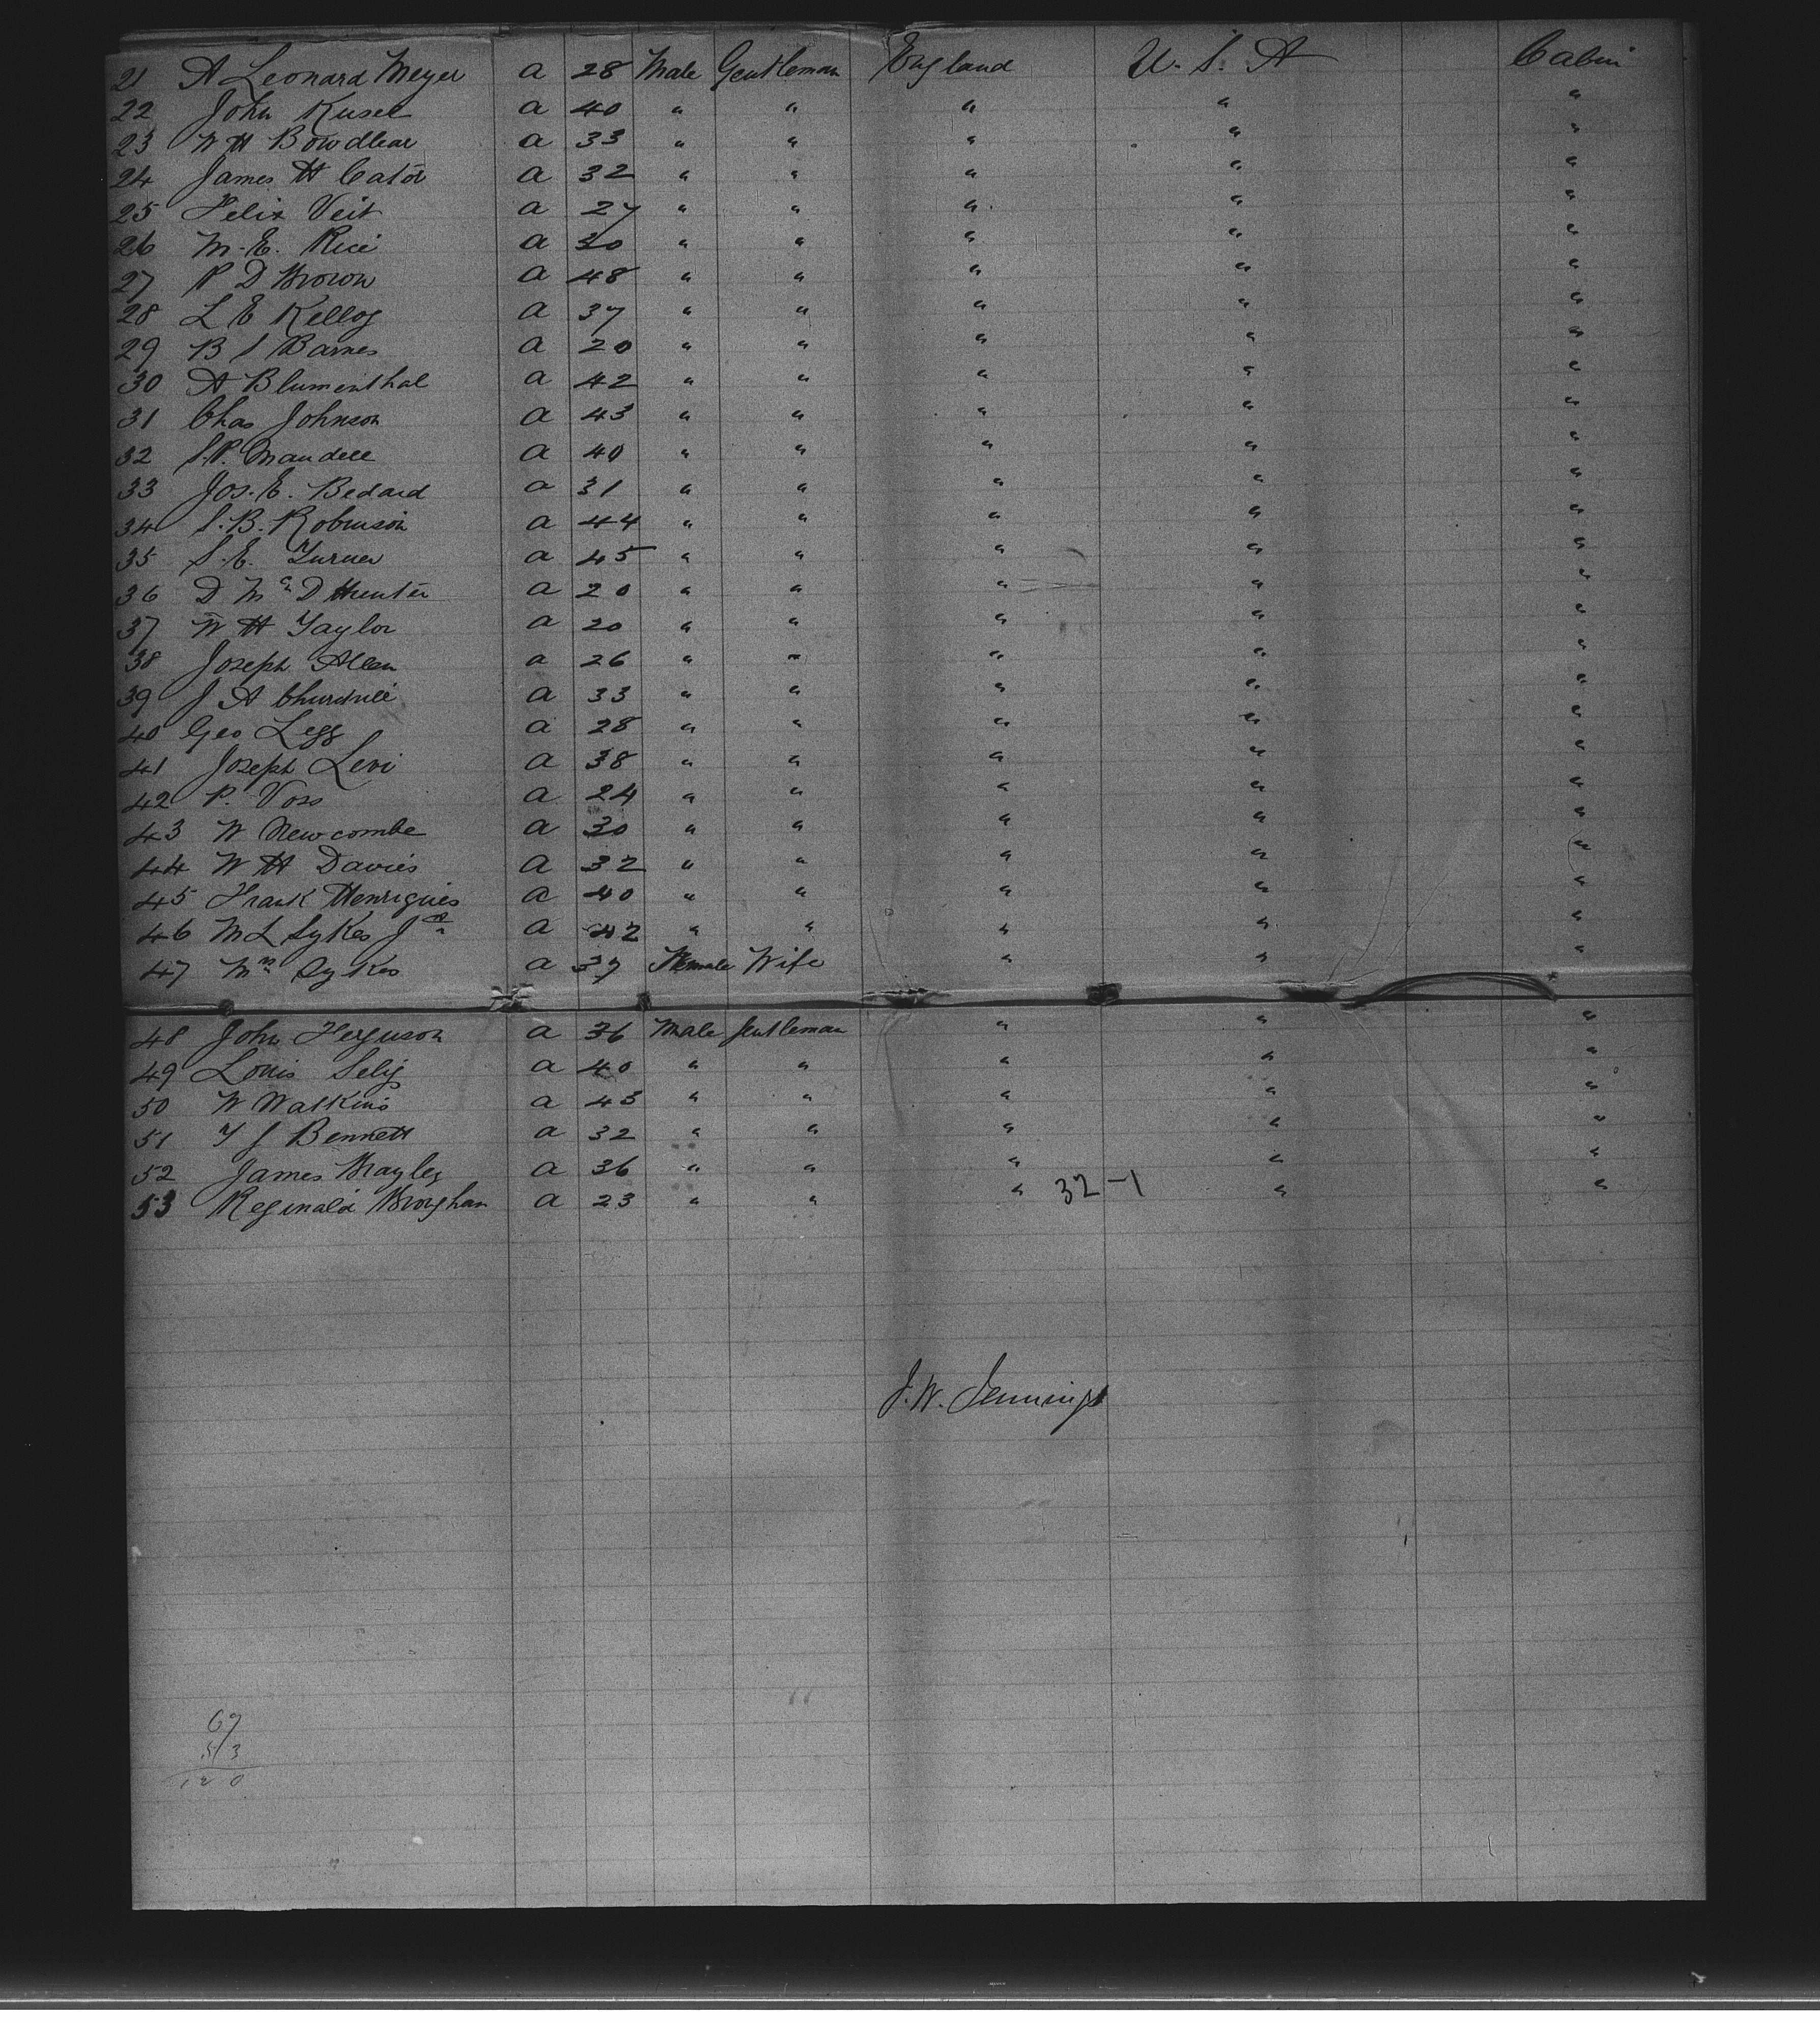 21 A Leonard Meyer a 28 Male Gentleman England U. S. A Cabin
22 John Kusel a 40 " " " " "
23 W H Bowdlear a 33 " " " " "
24 James H Cator a 32 " " " " "
25 Felix Veit a 27 " " " " "
26 M. E. Rice a 30 " " " " "
27 P D Brown a 48 " " " " "
28 L E Kellog a 37 " " " " "
29 B S Barnes a 20 " " " " "
30 A Blumenthal a 42 " " " " "
31 Chas Johnson a 43 " " " " "
32 S. P. Mandell a 40 " " " " "
33 Jos. E. Bedard a 31 " " " " "
34 S. B. Robinson a 44 " " " " "
35 S. E. Turner a 45 " " " " "
36 D Mc D Hunter a 20 " " " " "
37 W H Taylor a 20 " " " " "
38 Joseph Allen a 26 " " " " "
39 J A Churchill a 33 " " " " "
40 Geo Legg a 28 " " " " "
41 Joseph Levi a 38 " " " " "
42 P. Voss a 24 " " " " "
43 W Newcombe a 30 " " " " "
44 W H Davies a 32 " " " " "
45 Frank Henriques a 40 " " " " "
46 M L Sykes Jr a 42 " " " " "
47 Mrs Sykes a 37 Female Wife " " "
48 John Ferguson a 36 Male Gentleman " " "
49 Louis Selig a 40 " " " " "
50 W Watkins a 45 " " " " "
51 T J Bennett a 32 " " " " "
52 James Bayley a 36 " " " " "
53 Reginald a 23 " " " 32-1 " "
J. W. Jennings
67
53
120